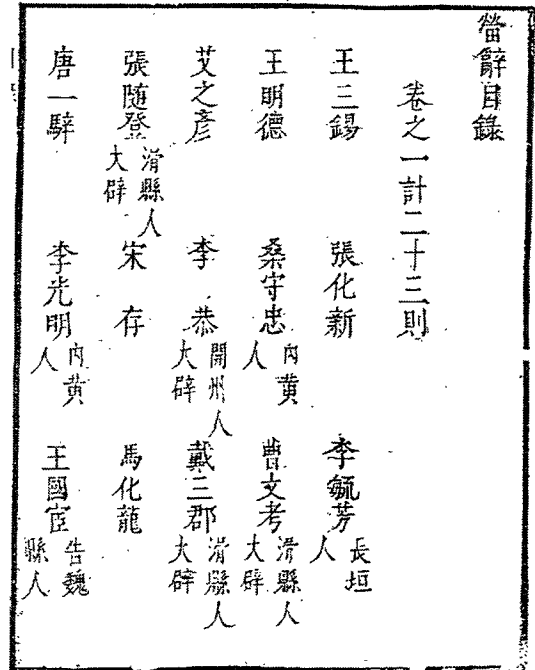 㽦辭目錄
卷之一計二十三則
王三錫 張化新 李毓芳 長垣人
王明德 桑守忠 內黃人 曹文考 滑縣人大辟
艾之彥 李恭 開州人大辟 戴三郡 滑縣人大辟
張隨登 滑縣人大辟 宋存 馬化龍
唐一騂 李光明 內黃人 王國宦 告魏縣人